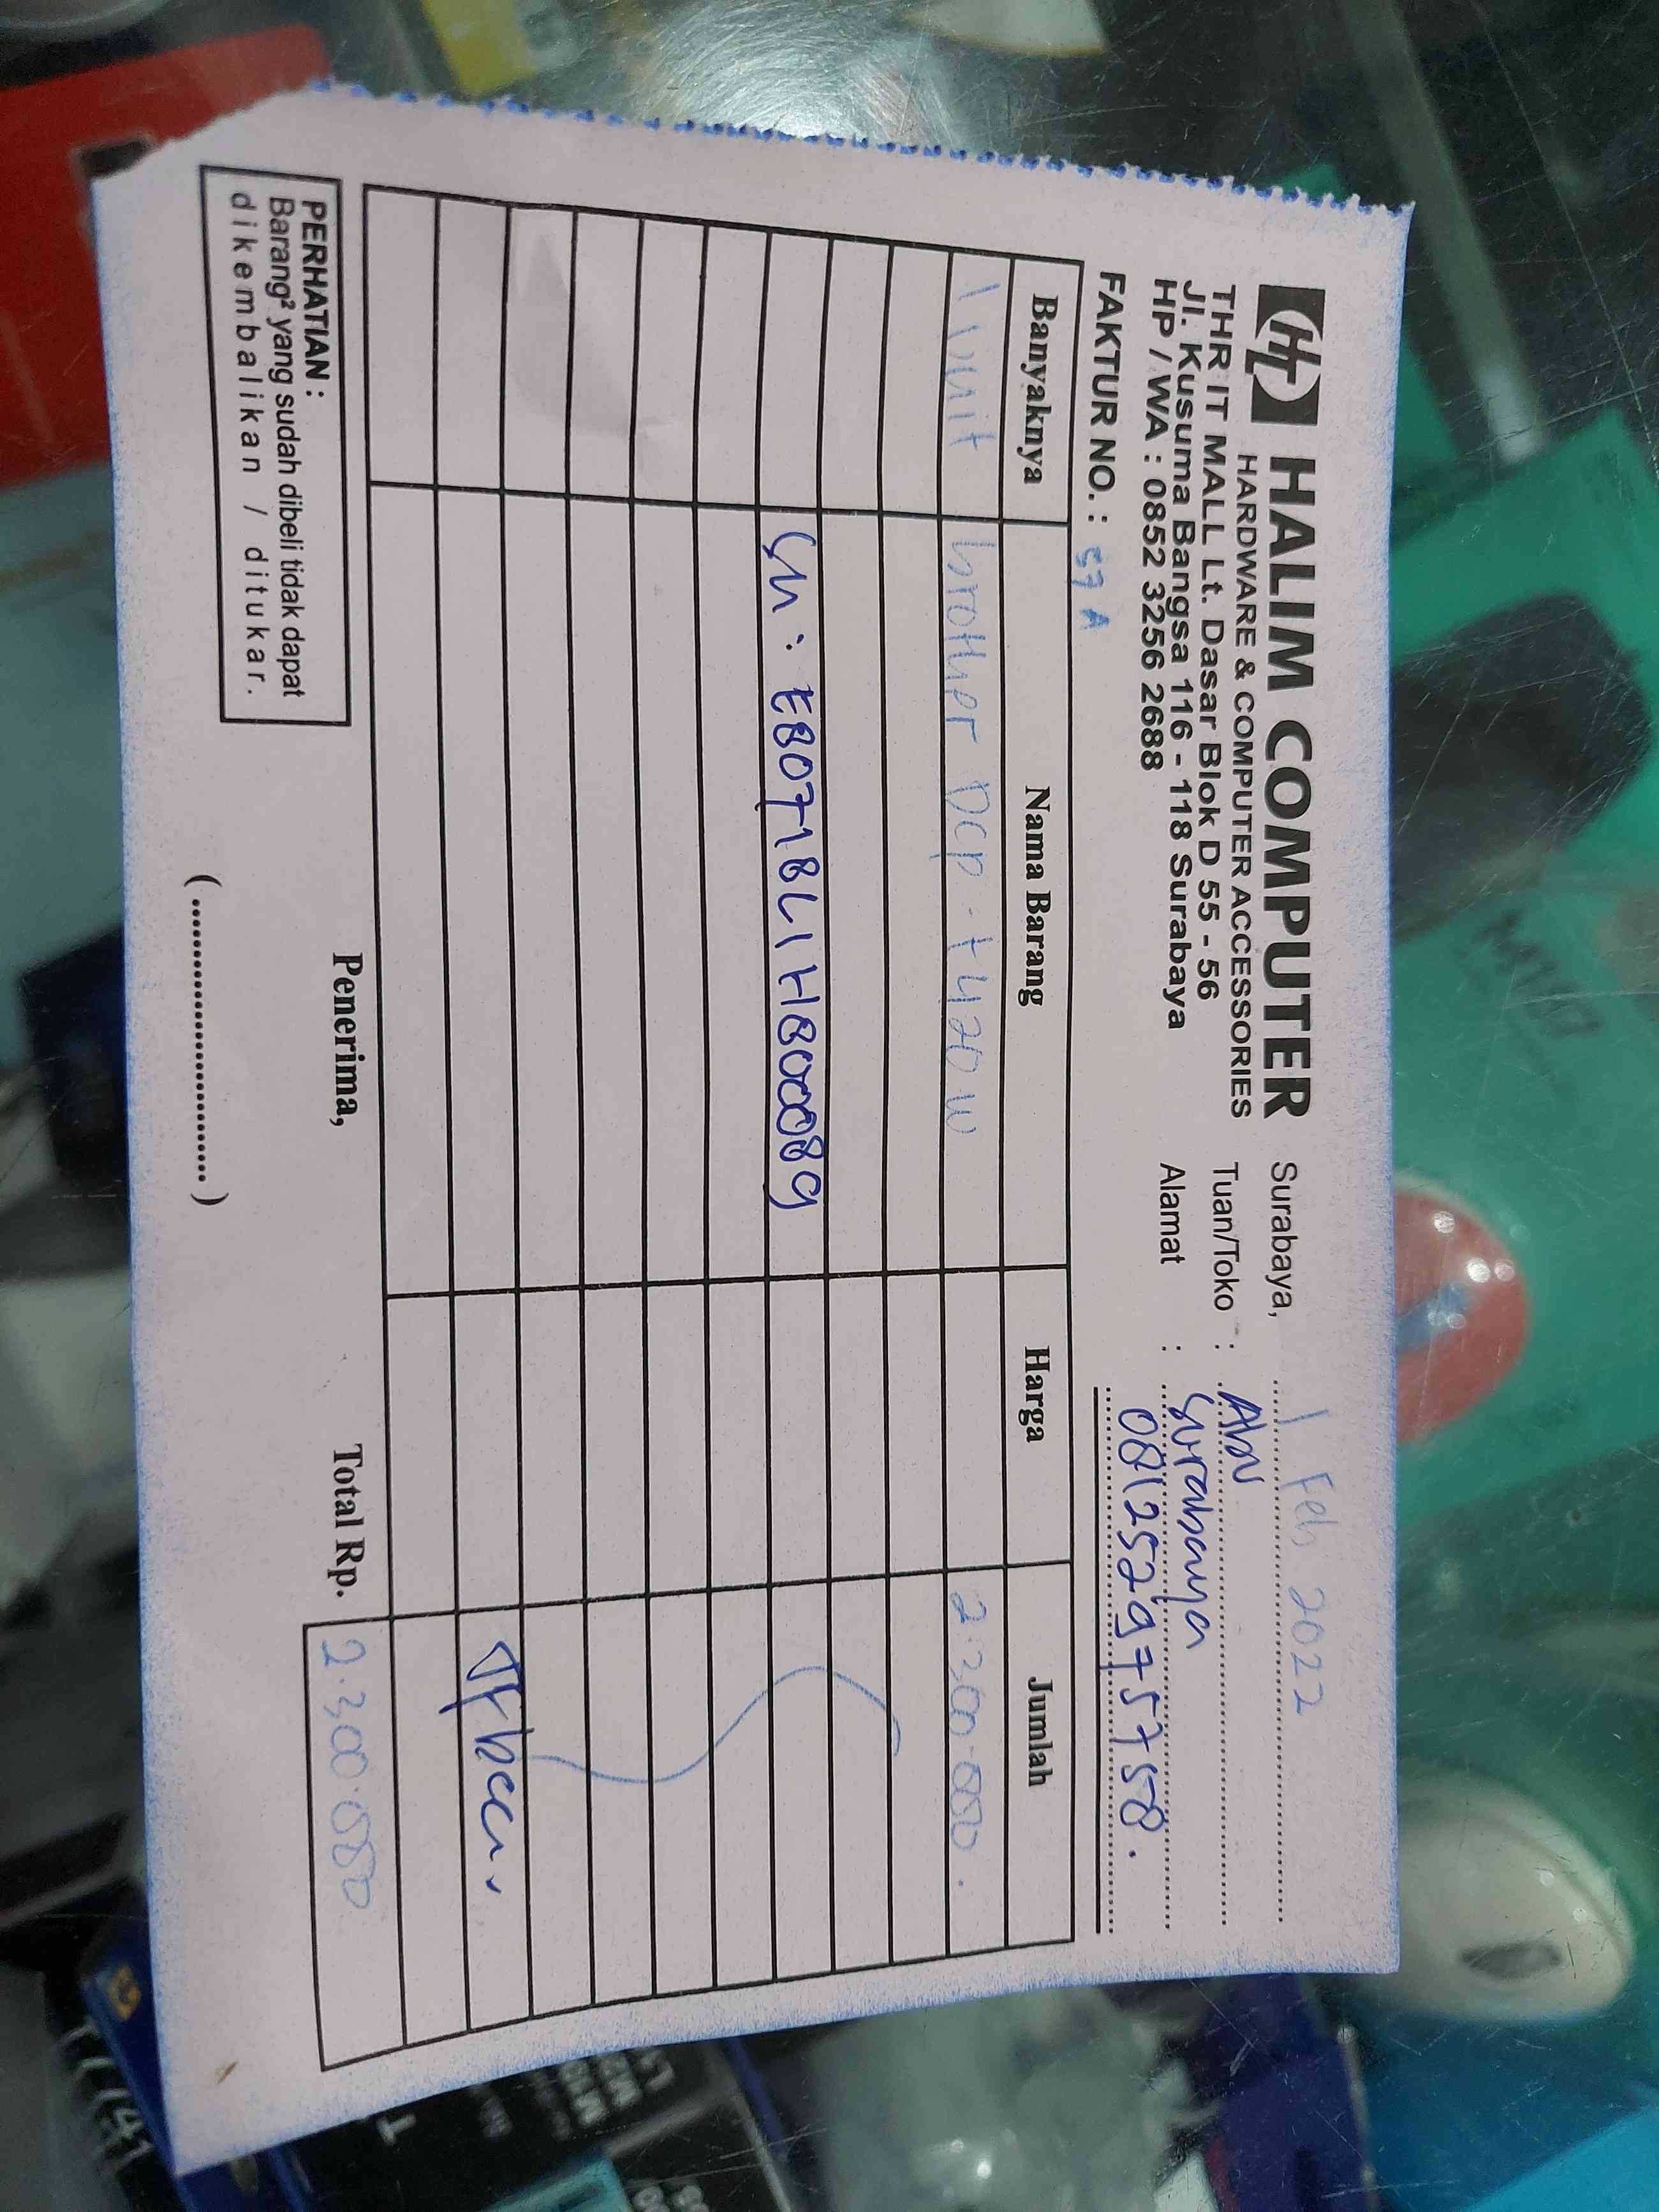 HT HALIM COMPUTER
HARDWARE & COMPUTER ACCESSORIES
THR IT MALL Lt. Dasar Blok D 55 - 56
Jl. Kusuma Bangsa 116 - 118 Surabaya
HP / WA : 0852 3256 2688
Surabaya, 1 Feb 2022
Tuan/Toko : Abu
Alamat : Surabaya
081252975758.
FAKTUR NO. : 57 A
Banyaknya Nama Barang Harga Jumlah
1 unit brother DCP - t420w 2.300.000.
SN : E80718L1H800089
PERHATIAN :
Barang² yang sudah dibeli tidak dapat
dikembalikan / ditukar.
Penerima,
(..............................)
Total Rp. 2.300.000